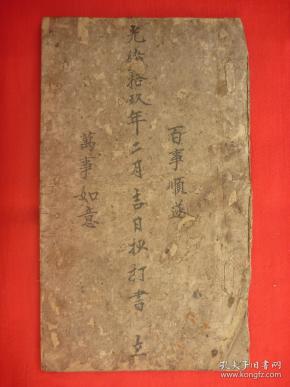 百事順遂
光緒拾玖年二月吉日抄訂書
萬事如意
孔夫子旧书网